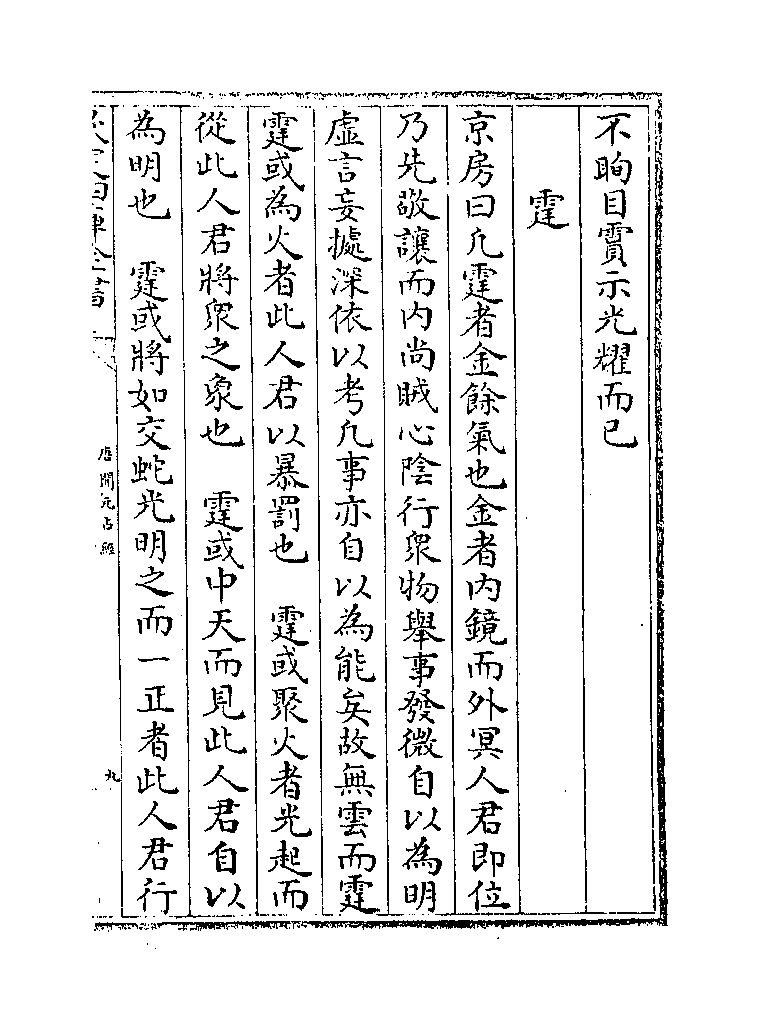 不眴目賈示光耀而已
霆
京房曰凡霆者金餘氣也金者内鏡而外冥人君即位
乃先敬讓而内尚賊心陰行衆物舉事發微自以為明
虛言妄據深依以考凡事亦自以為能矣故無雲而霆
霆或為火者此人君以暴罰也　霆或聚火者光起而
從此人君將衆之象也　霆或中天而見此人君自以
為明也　霆或將如交蛇光明之而一正者此人君行
唐開元占經
九